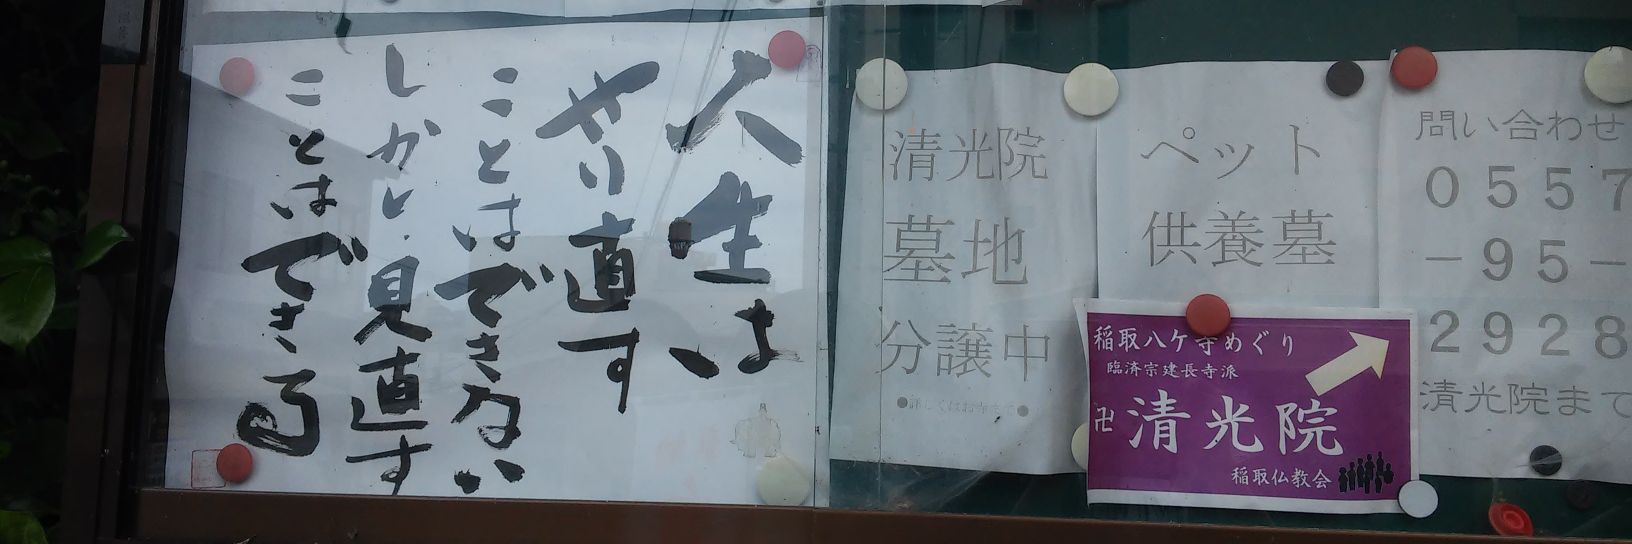 人生は
やり直す
ことはできない
しかし見直す
ことはできる
清光院
墓地
分譲中
●詳しくはお寺まで●
ペット
供養墓
問い合わせ
0557
-95-
2928
清光院まで
稲取八ケ寺めぐり
臨済宗建長寺派
卍 清光院
稲取仏教会